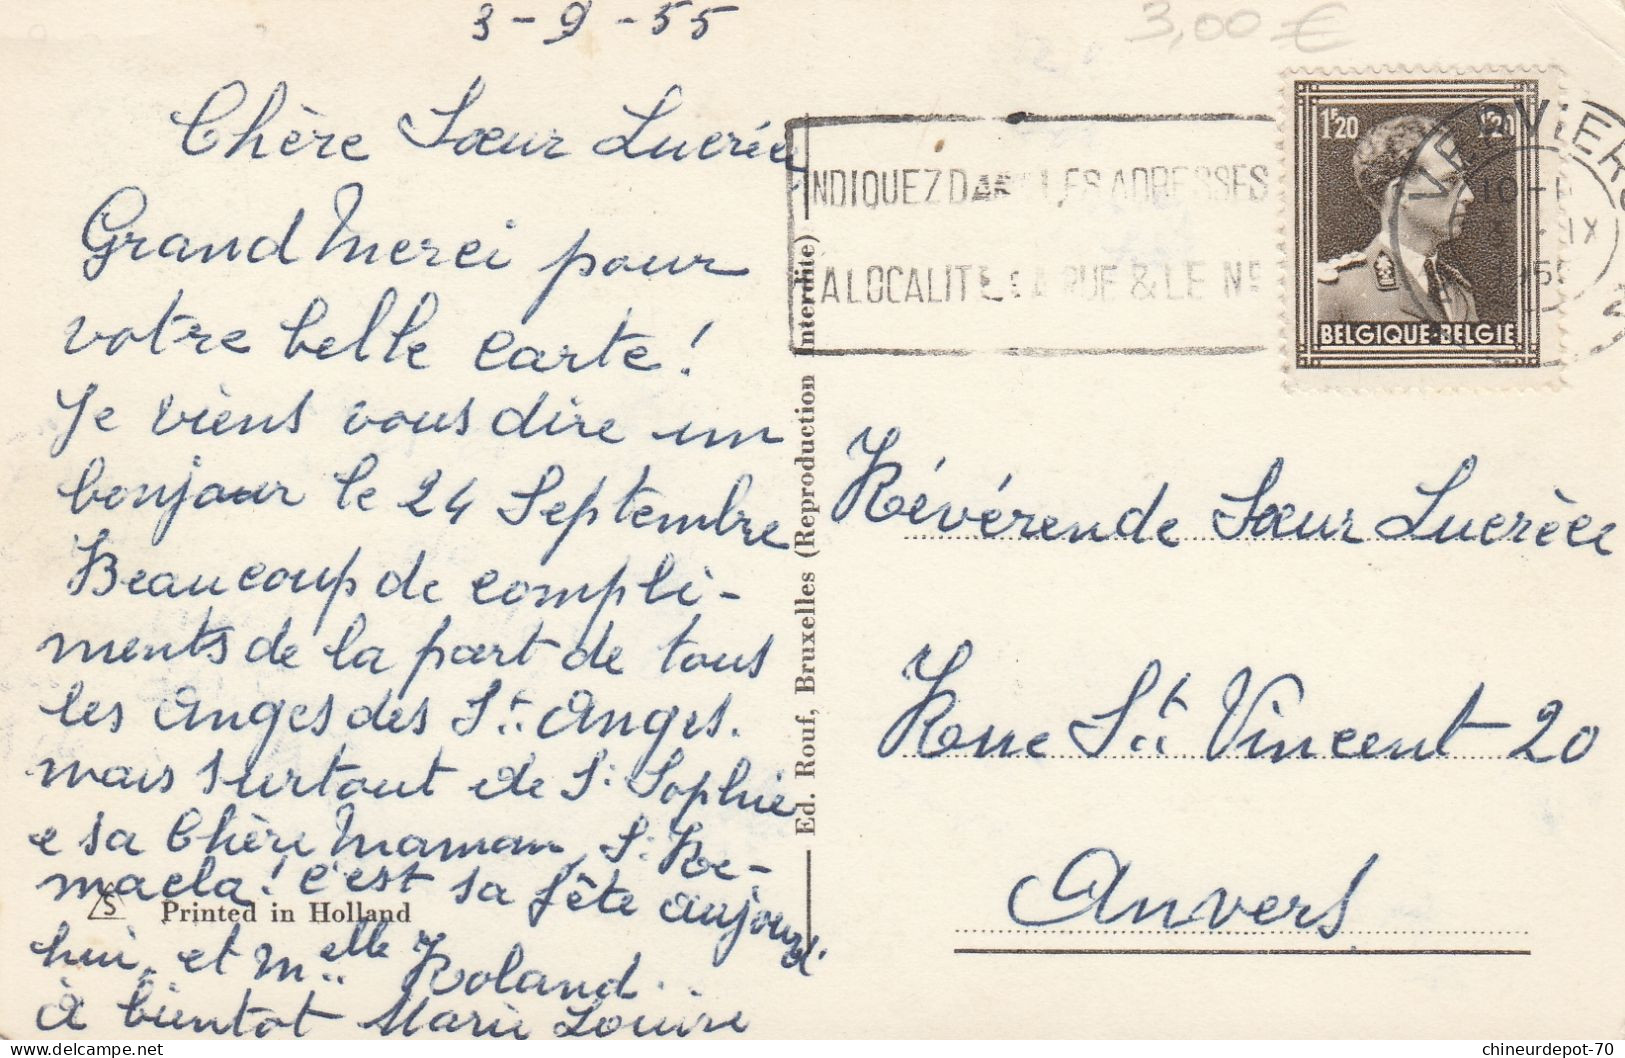 3-9-55
3,00 €
Chère Sœur Lucrèce,
Grand Merci pour
votre belle carte!
Je viens vous dire un
bonjour le 24 Septembre
Beaucoup de compli-
ments de la part de tous
les anges des St. Anges.
mais surtout de Sr Sophie
e sa Chère Maman Sr Ro-
maela! c'est sa fête aujourd'
hui, et Melle Roland...
à bientot Marie Louise
S
Printed in Holland
Ed. Rouf, Bruxelles (Reproduction interdite)
INDIQUEZ DANS LES ADRESSES
LA LOCALITE LA RUE & LE No
1F20 1F20
BELGIQUE-BELGIE
VERVIERS
10-
IX
1955
2
Révérende Sœur Lucrèce
Rue St. Vincent 20
Anvers
chineurdepot-70